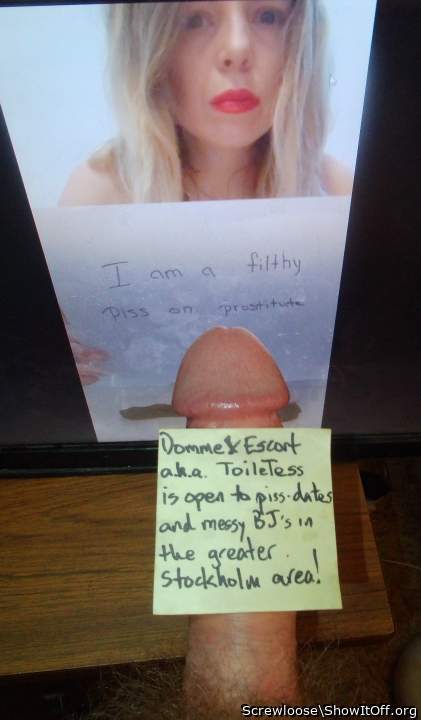 I am a filthy
piss on prostitute
Domme & Escort
a.k.a. ToileTess
is open to piss-dates
and messy BJ's in
the greater
Stockholm area!
Screwloose\ShowItOff.org